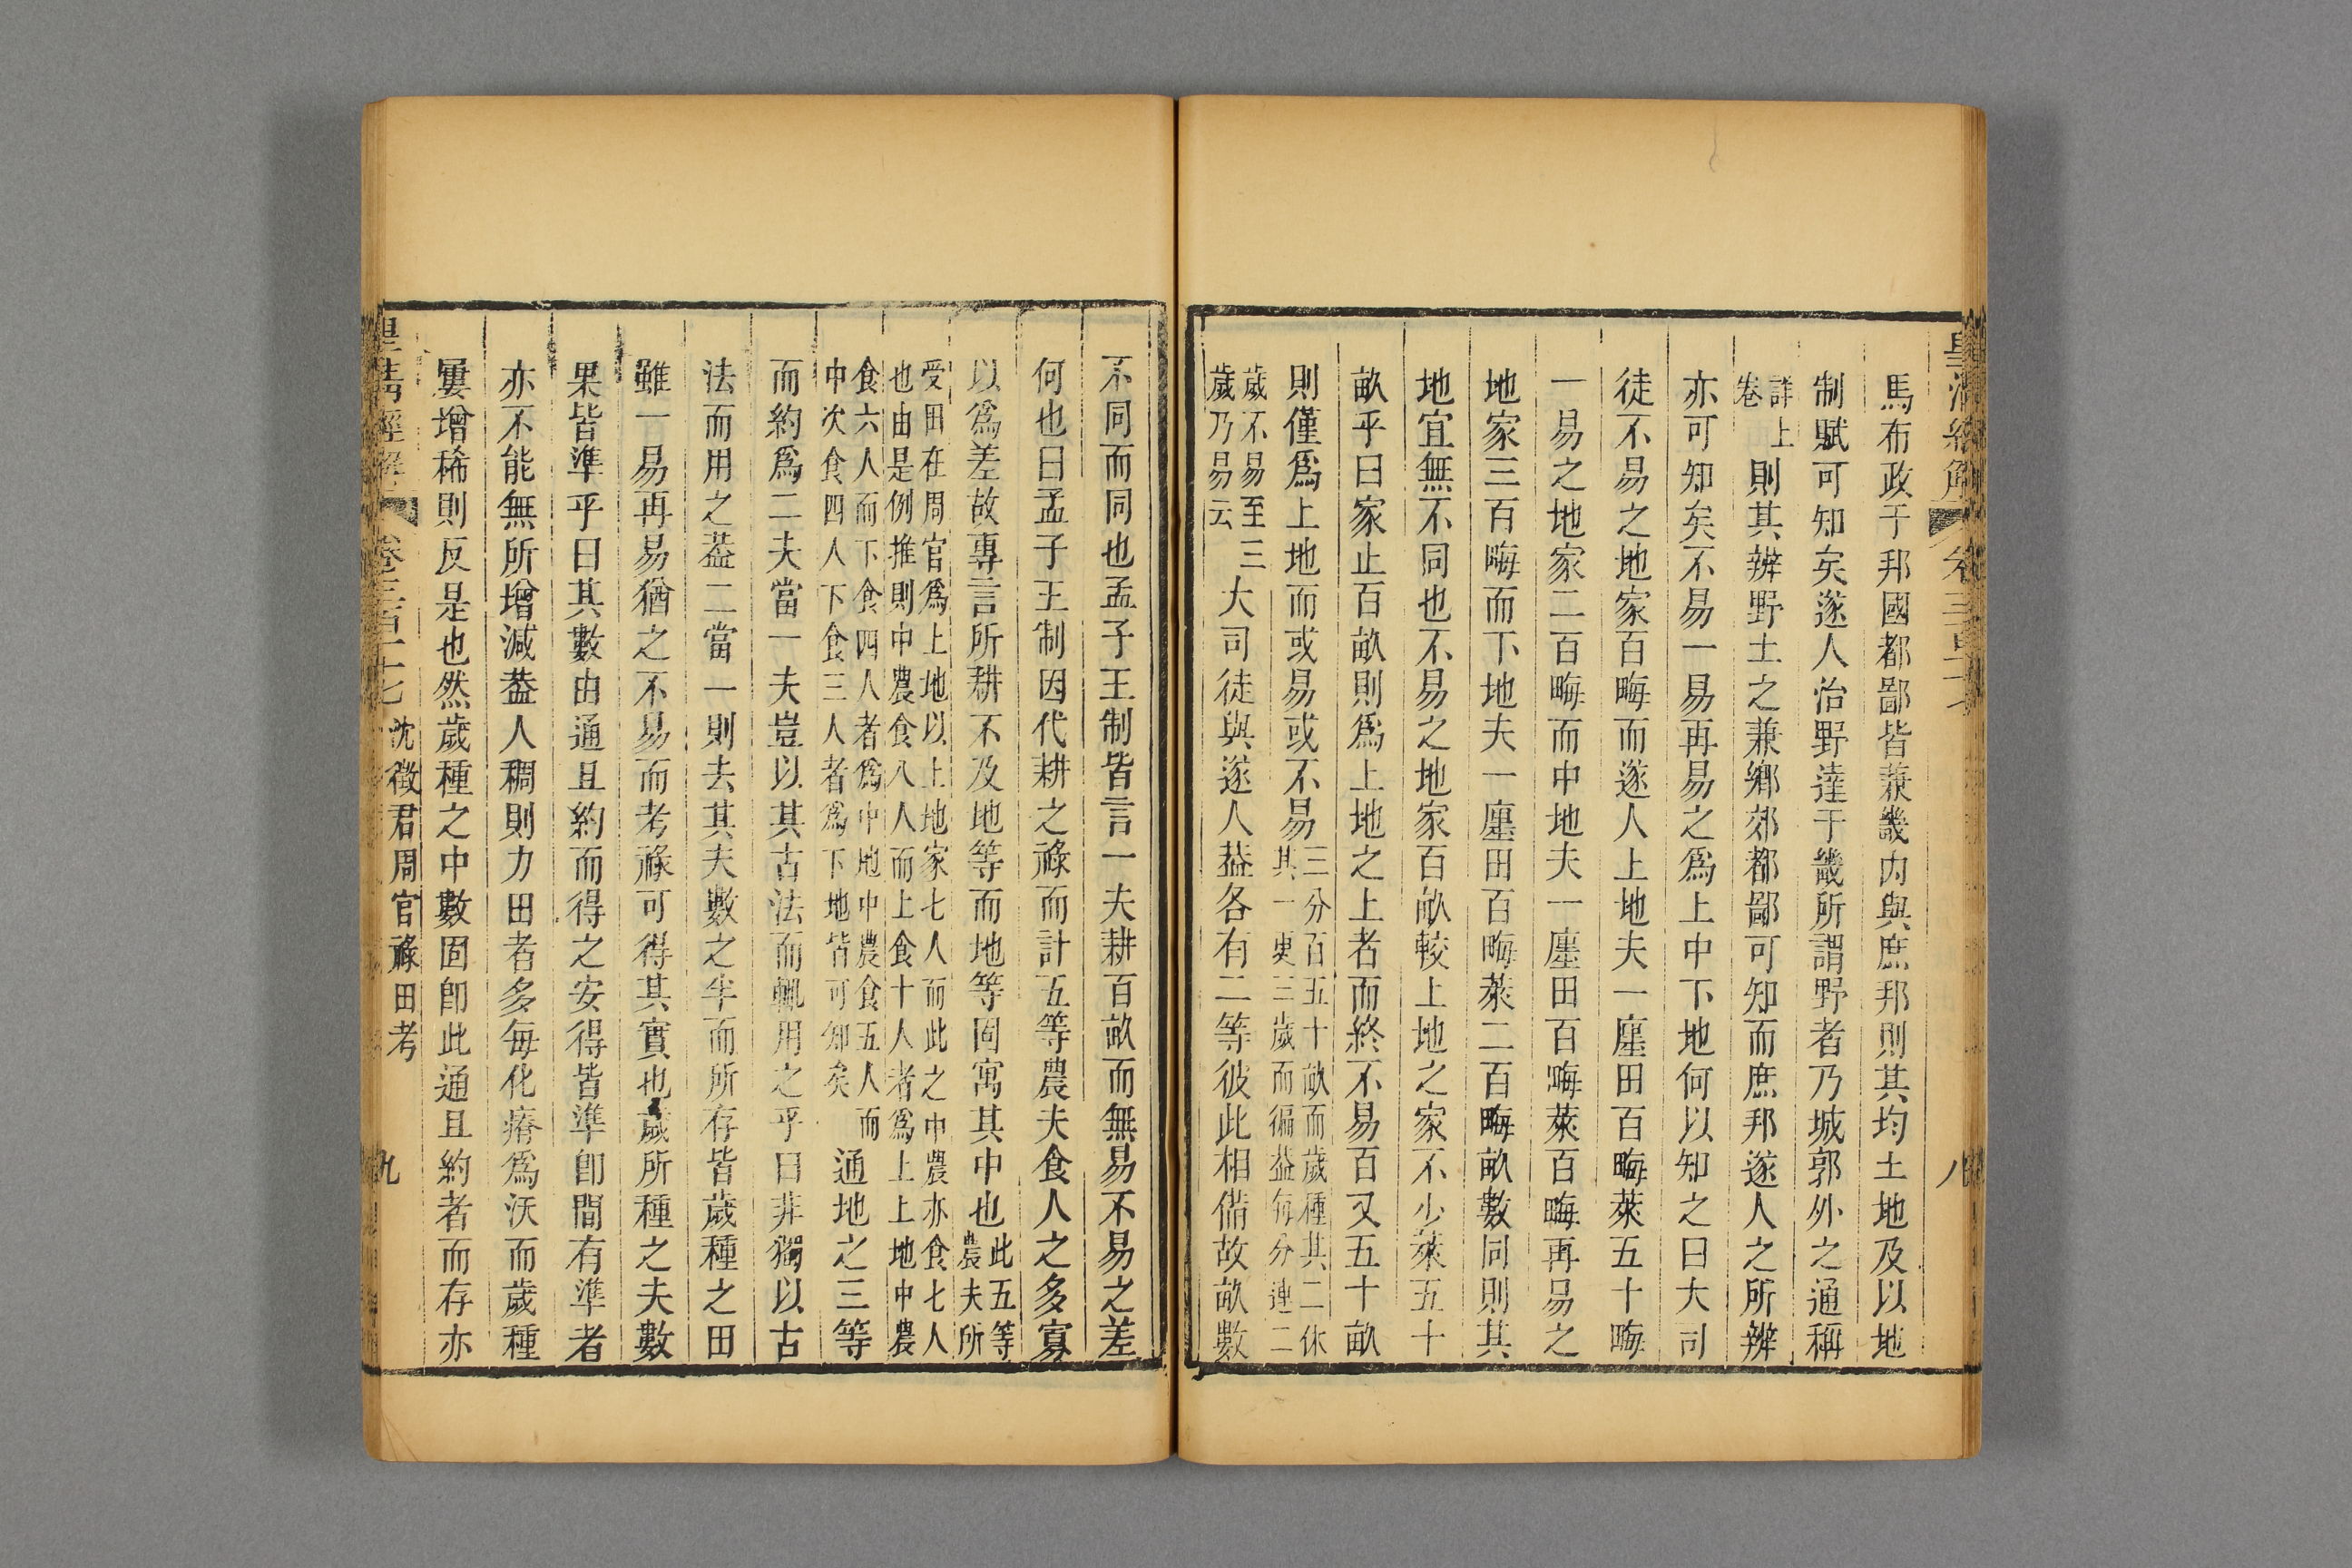 皇清經解 卷三百十七 八
馬布政于邦國都鄙皆兼畿內與庶邦則其均土地及以地
制賦可知矣遂人治野達于畿所謂野者乃城郭外之通稱
詳上
卷
則其辨野土之兼鄉郊都鄙可知而庶邦遂人之所辨
亦可知矣不易一易再易之爲上中下地何以知之曰大司
徒不易之地家百畮而遂人上地夫一廛田百畮萊五十畮
一易之地家二百畮而中地夫一廛田百畮萊百畮再易之
地家三百畮而下地夫一廛田百畮萊二百畮畝數同則其
地宜無不同也不易之地家百畝較上地之家不少萊五十
畝乎曰家止百畝則爲上地之上者而終不易百又五十畝
則僅爲上地而或易或不易
三分百五十畝而歲種其二休
其一更三歲而徧葢每分連二
歲不易至三
歲乃易云
大司徒與遂人葢各有二等彼此相備故畝數
不同而同也孟子王制皆言一夫耕百畝而無易不易之差
何也曰孟子王制因代耕之祿而計五等農夫食人之多寡
以爲差故專言所耕不及地等而地等固寓其中也
此五等
農夫所
受田在周官爲上地以上地家七人而此之中農亦食七人
也由是例推則中農食八人而上食十人者爲上上地中農
食六人而下食四人者爲中地中農食五人而
中次食四人下食三人者爲下地皆可知矣
通地之三等
而約爲二夫當一夫豈以其古法而輒用之乎曰非獨以古
法而用之葢二當一則去其夫數之半而所存皆歲種之田
雖一易再易猶之不易而考祿可得其實也歲所種之夫數
果皆準乎曰其數由通且約而得之安得皆準卽間有準者
亦不能無所增減葢人稠則力田者多每化瘠爲沃而歲種
屢增稀則反是也然歲種之中數固卽此通且約者而存亦
皇清經解 卷三百十七 沈徵君周官祿田考 九